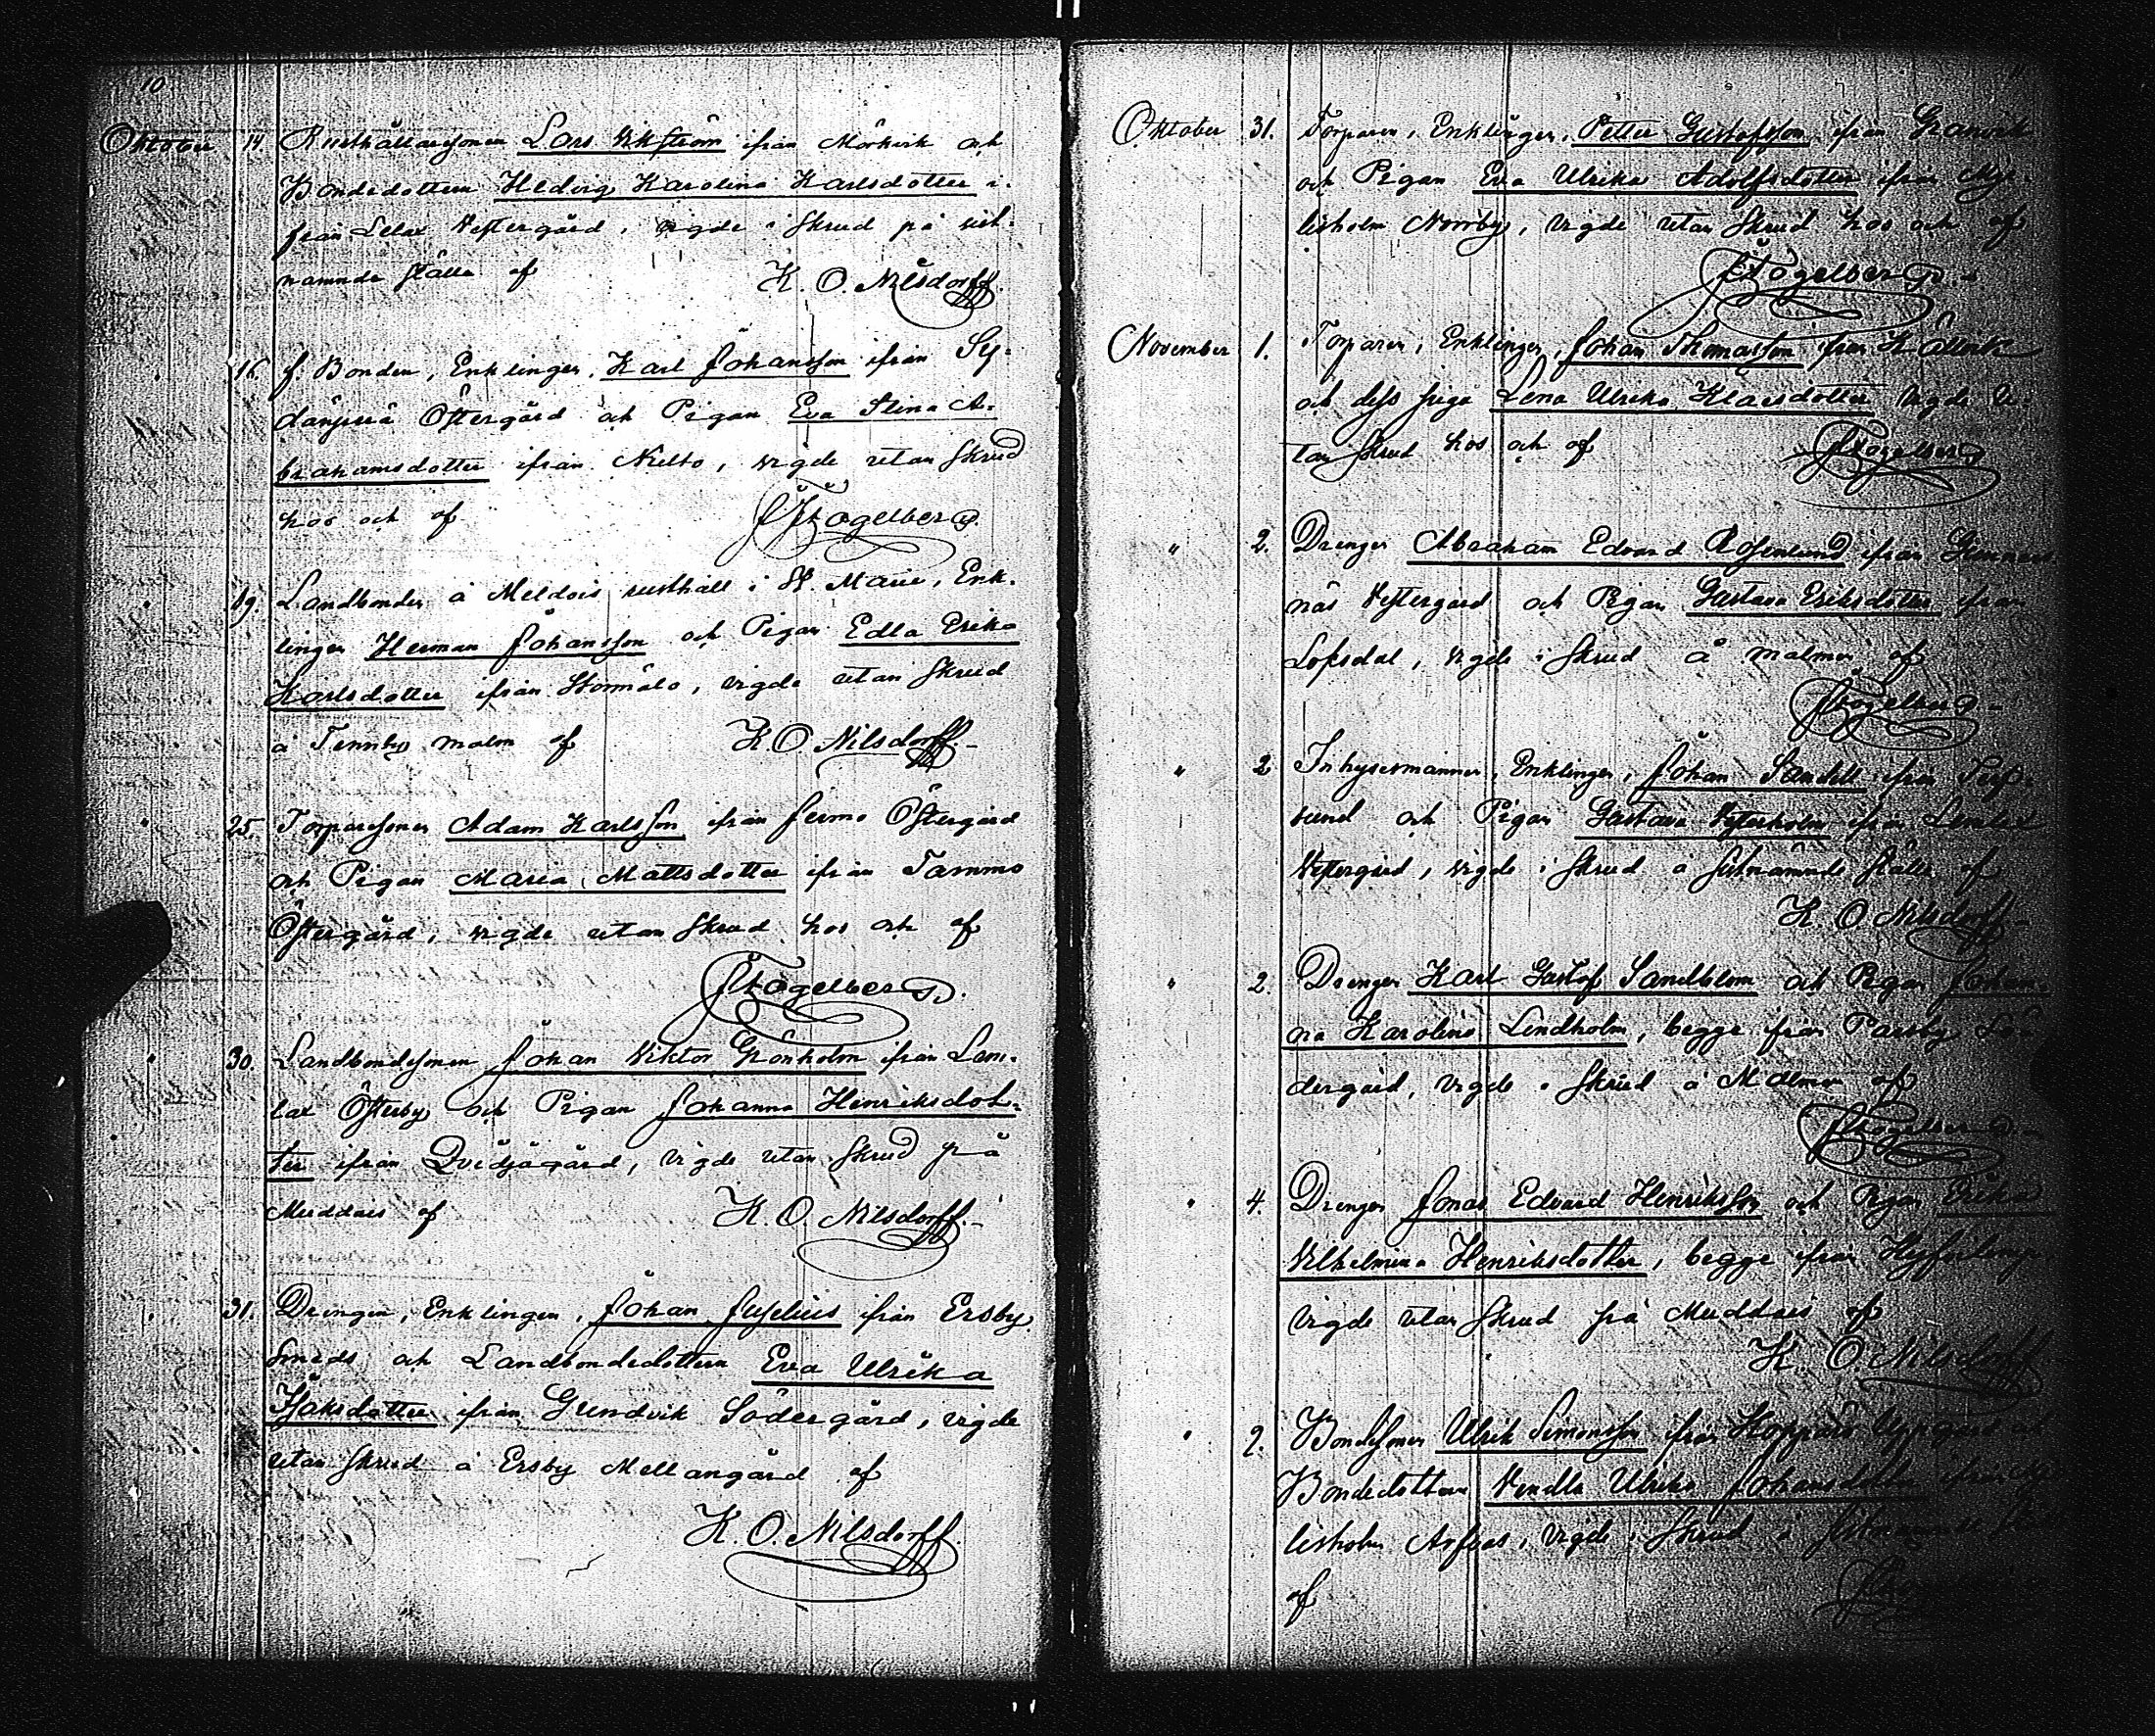 10
Oktober 14. Rusthållaresonen Lars Wikström ifrån Mörkvik och
Bondedottern Hedvig Karolina Karlsdotter i-
från Lelax Vestergård, vigde i skrud på sist-
nämnde ställe af K. O. Nilsdorff.
16. f. Bonden, Enklingen, Karl Johansson ifrån Sy-
dänperä Östergård och Pigan Eva Stina A-
brahamsdotter ifrån Nulto, vigde utan skrud
hos och af Fogelberg.
19. Landbonden å Meldois rusthåll i St. Marie, Enk-
lingen Herman Johansson och Pigan Edla Erika
Karlsdotter ifrån Stormälö, vigde utan skrud
å Tennby malm af K. O. Nilsdorff.
25. Torparesonen Adam Karlsson ifrån Jermo Östergård
och Pigan Maria Mattsdotter ifrån Tammo
Östergård, vigde utan skrud hos och af
Fogelberg.
30. Landbondesonen Johan Viktor Grönholm ifrån Lem-
lax Österby och Pigan Johanna Henriksdot-
ter ifrån Qvidjagård, vigde utan skrud på
Muddais af K. O. Nilsdorff.
31. Drengen, Enklingen, Johan Juselius ifrån Ersby
Smeds och Landbondedottern Eva Ulrika
Isaksdotter ifrån Grundvik Södergård, vigde
utan skrud å Ersby Mellangård af
K. O. Nilsdorff.
11
Oktober 31. Torparen, Enklingen, Petter Gustafsson ifrån Granvik
och Pigan Eva Ulrika Adolfsdotter ifrån Myl-
lisholm Norrby, vigde utan skrud hos och af
Fogelberg.
November 1. Torparen, Enklingen, Johan Thomasson ifrån Källvik
och dess piga Lena Ulrika Klaesdotter vigde u-
tan skrud hos och af Fogelberg
" 2. Drengen Abraham Edvard Rosenlund ifrån
näs Vestergård och Pigan Gustava Eriksdotter ifrån
Lofsdal, vigde i skrud å malmen af
Fogelberg
" 2. Inhysesmannen, Enklingen, Johan Sandell ifrån
sund och Pigan Gustava Vesterholm ifrån Lemlax
Vestergård, vigde i skrud å sistnämnde ställe af
K. O. Nilsdorff
" 2. Drengen Karl Gustaf Sandblom och Pigan Johan-
na Karolina Lindholm, begge från Parsby Sö-
dergård, vigde i skrud å Malmen af
Fogelberg
" 4. Drengen Jonas Edvard Henriksson och Pigan Erika
Vilhelmina Henriksdotter, begge från
vigde utan skrud på Muddais af
K. O. Nilsdorff
" 9. Bondesonen Ulrik Simonsson ifrån Koppar Uppgård
Bondedottern Vendla Ulrika Johansdotter ifrån Myl-
lisholm Arfvas, vigde i skrud å
af